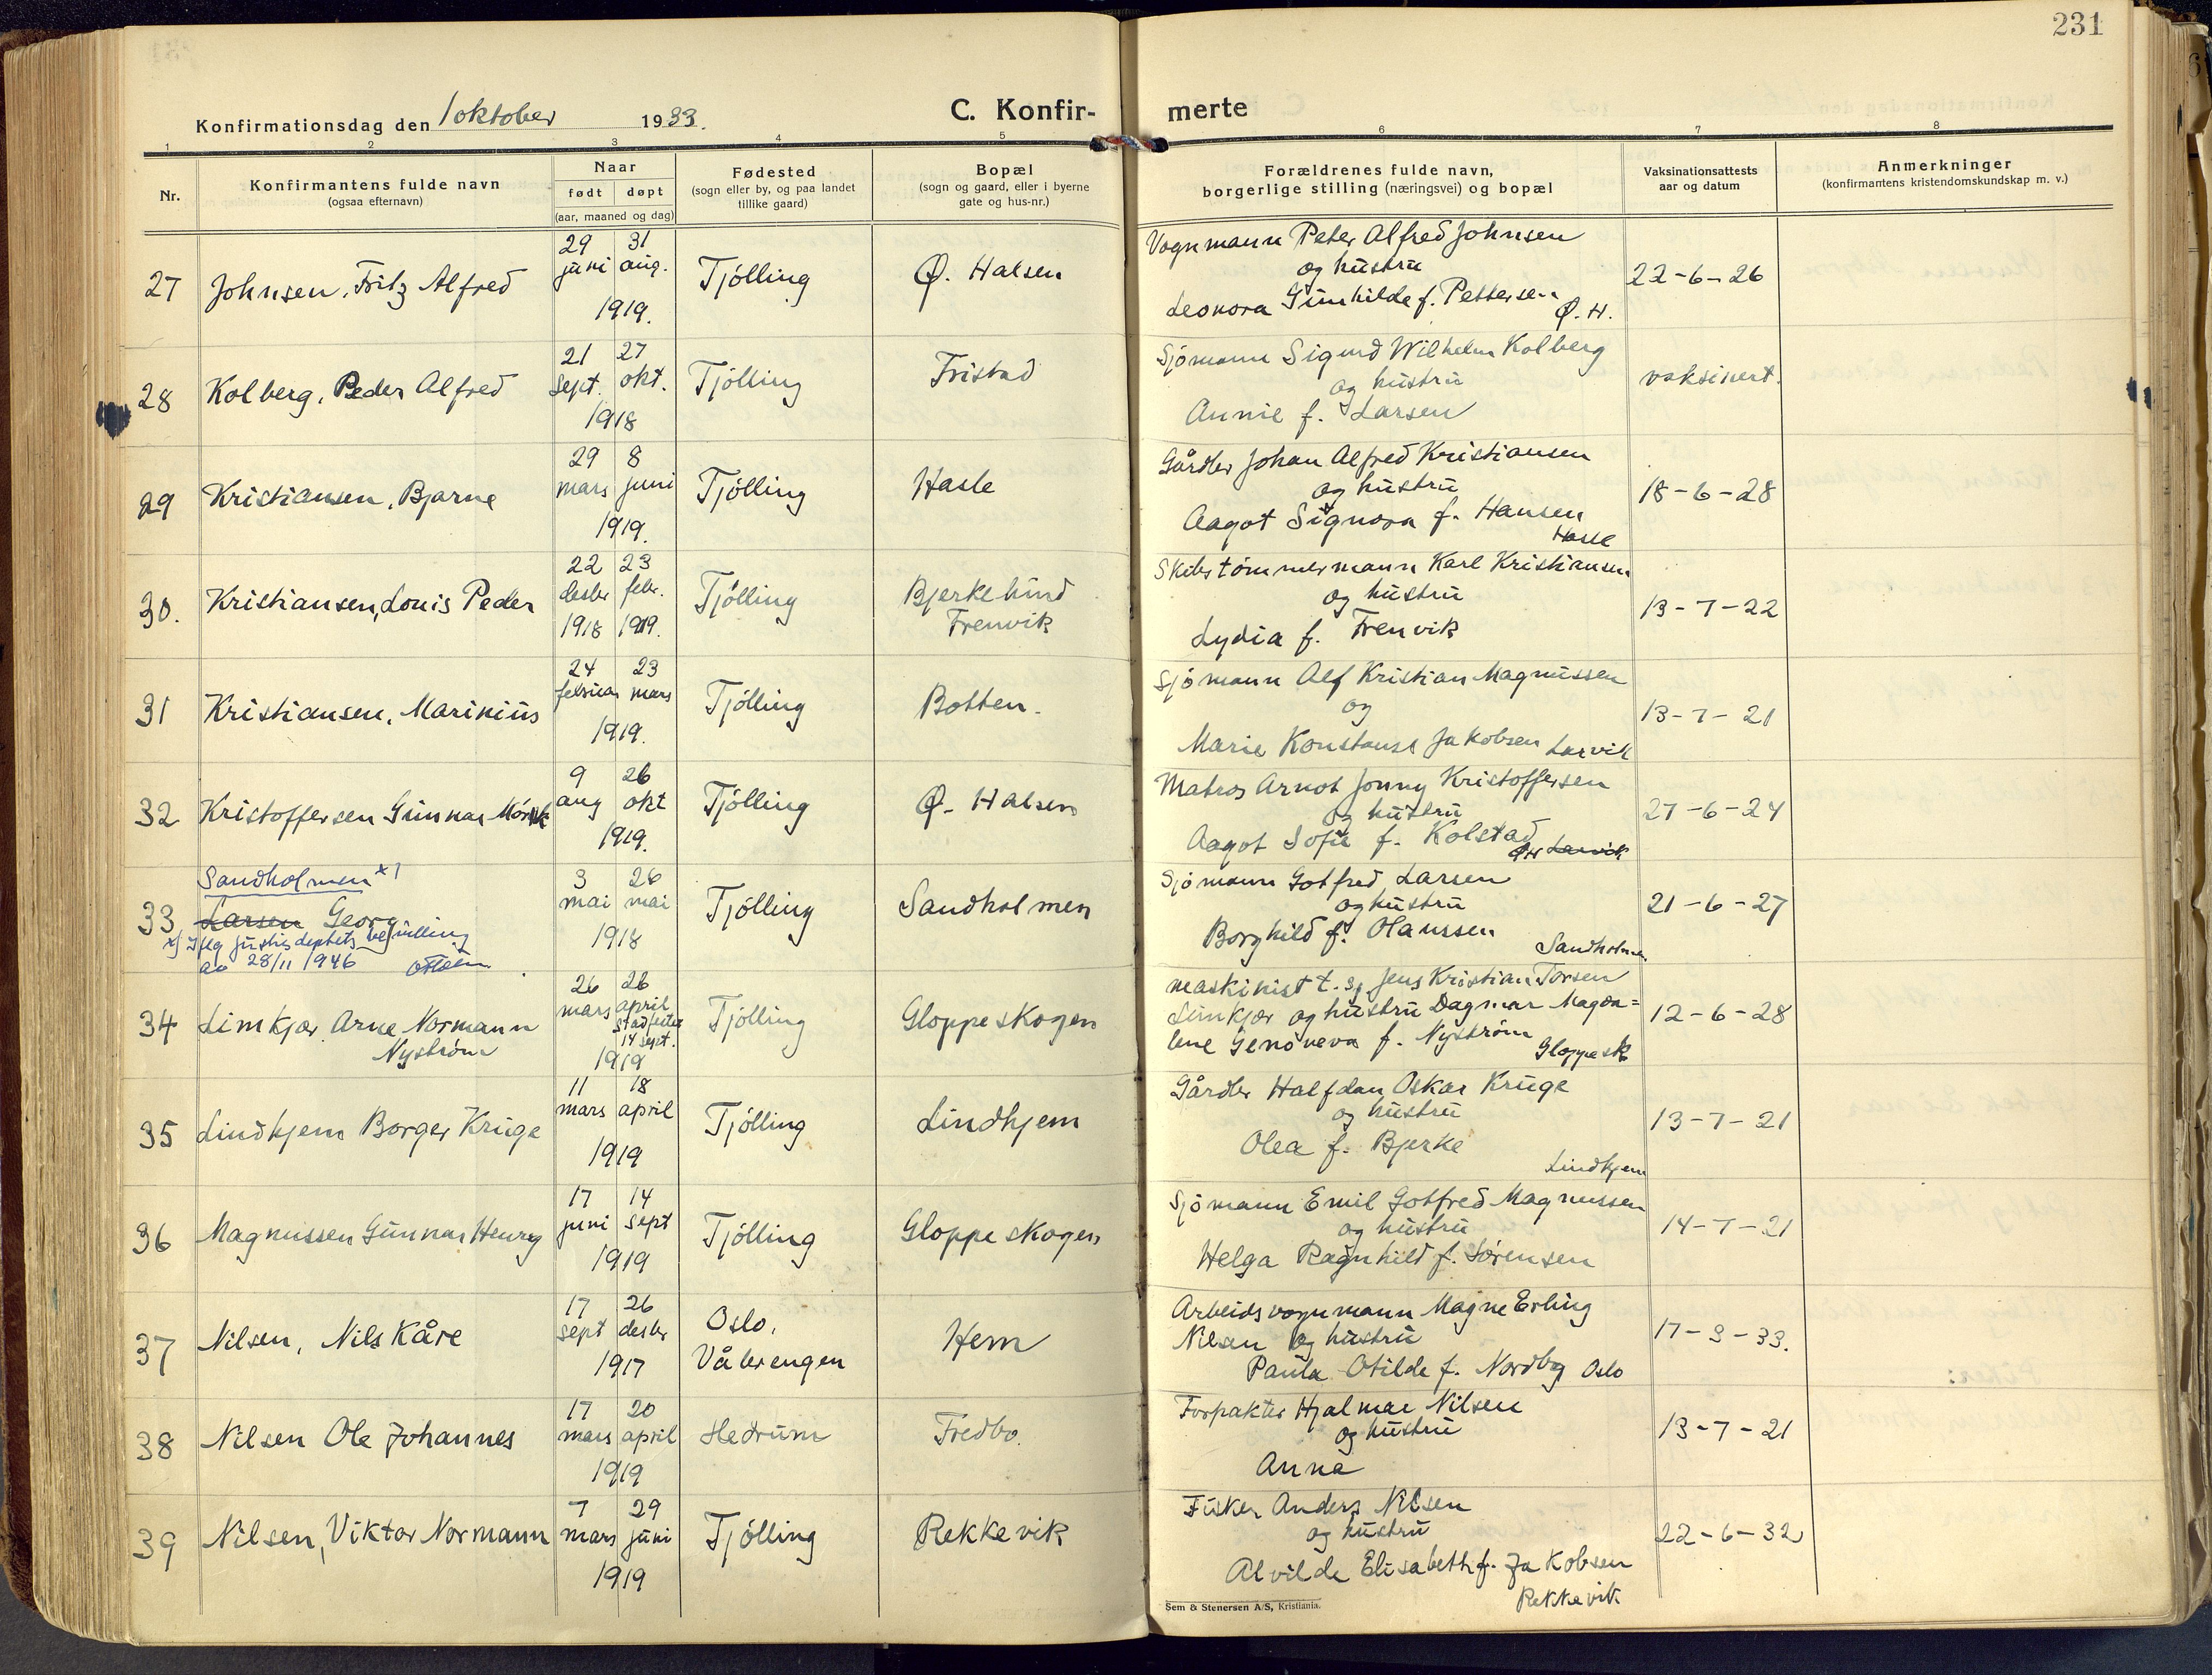 231
Konfirmationsdag den 1 oktober 1933.
C. Konfir-
merte
1 2 3 4 5 6 7 8
Nr.
Konfirmantens fulde navn
(ogsaa efternavn)
Naar
født døpt
(aar, maaned og dag)
Fødested
(sogn eller by, og paa landet
tillike gaard)
Bopæl
(sogn og gaard, eller i byerne
gate og hus-nr.)
Forældrenes fulde navn,
borgerlige stilling (næringsvei) og bopæl
Vaksinationsattests
aar og datum
Anmerkninger
(konfirmantens kristendomskundskap m. v.)
27 Johnsen, Fritz Alfred
29 juni 31 aug.
1919.
Tjölling
Ø. Halsen
Vognmann Peter Alfred Johnsen
og hustru
Leonora Gunhilde f. Pettersen
Ø. H.
22-6-26
28 Kolberg, Peder Alfred
21 sept. 27 okt.
1918
Tjölling
Fristad
Sjömann Sigurd Wilhelm Kolberg
og hustru
Annie f. Larsen
vaksinert.
29 Kristiansen, Bjarne
29 mars 8 juni
1919.
Tjölling
Hasle
Gårdbr Johan Alfred Kristiansen
og hustru
Aagot Signora f. Hansen
Hasle
18-6-28
30. Kristiansen, Louis Peder
22 desbr 23 febr.
1918 1919.
Tjölling
Bjerkelund
Frenvik
Skibstömmermann Karl Kristiansen
og hustru
Lydia f. Frenvik
13-7-22
31 Kristiansen, Marinius
24 februar 23 mars
1919.
Tjölling
Botten.
Sjömann Alf Kristian Magnussen
og
Marie Konstanse Jakobsen Larvik
13-7-21
32 Kristoffersen Gunnar Mörk
9 aug 26 okt
1919.
Tjölling
Ø. Halsen
Matros Arnot Jonny Kristoffersen
og hustru
Aagot Sofie f. Kolstad
ØH Larvik
27-6-24
Sandholmen x)
33 Larsen Georg
x) Iflg justisdeptets bevilling
av 28/11 1946
3 mai 26 mai
1918
Tjölling
Sandholmen
Sjömann Gotfred Larsen
og hustru
Borghild f. Olaussen
Sandholmen
21-6-27
34 Limkjær Arne Normann
Nyström
26 mars 26 april
stadfestet
14 sept.
1919
Tjölling
Gloppeskogen
maskinist t. sj. Jens Kristian Torsen
Limkjær og hustru Dagmar Magda=
lene Genoveva f. Nyström
Gloppesk
12-6-28
35 Lindhjem Borger Kruge
11 mars 18 april
1919
Tjölling
Lindhjem
Gårdbr Halfdan Oskar Kruge
og hustru
Olea f. Bjerke
Lindhjem
13-7-21
36 Magnussen Gunnar Henry
17 juni 14 sept
1919
Tjölling
Gloppeskogen
Sjömann Emil Gotfred Magnussen
og hustru
Helga Ragnhild f. Sörensen
14-7-21
37 Nilsen, Nils Kåre
17 sept 26 desbr
1917
Oslo,
Vålerengen
Hem
Arbeidsvognmann Magne Erling
Nilsen og hustru
Paula Otilde f. Nordby Oslo
17-3-33.
38 Nilsen Ole Johannes
17 mars 20 april
1919
Hedrum
Fredbo.
Forpakter Hjalmar Nilsen
og hustru
Anna
13-7-21
39 Nilsen, Viktor Normann
7 mars 29 juni
1919
Tjölling
Rekkevik
Fisker Anders Nilsen
og hustru
Alvilde Elisabeth f. Jakobsen
Rekkevik
22-6-32
Sem & Stenersen A/S, Kristiania.